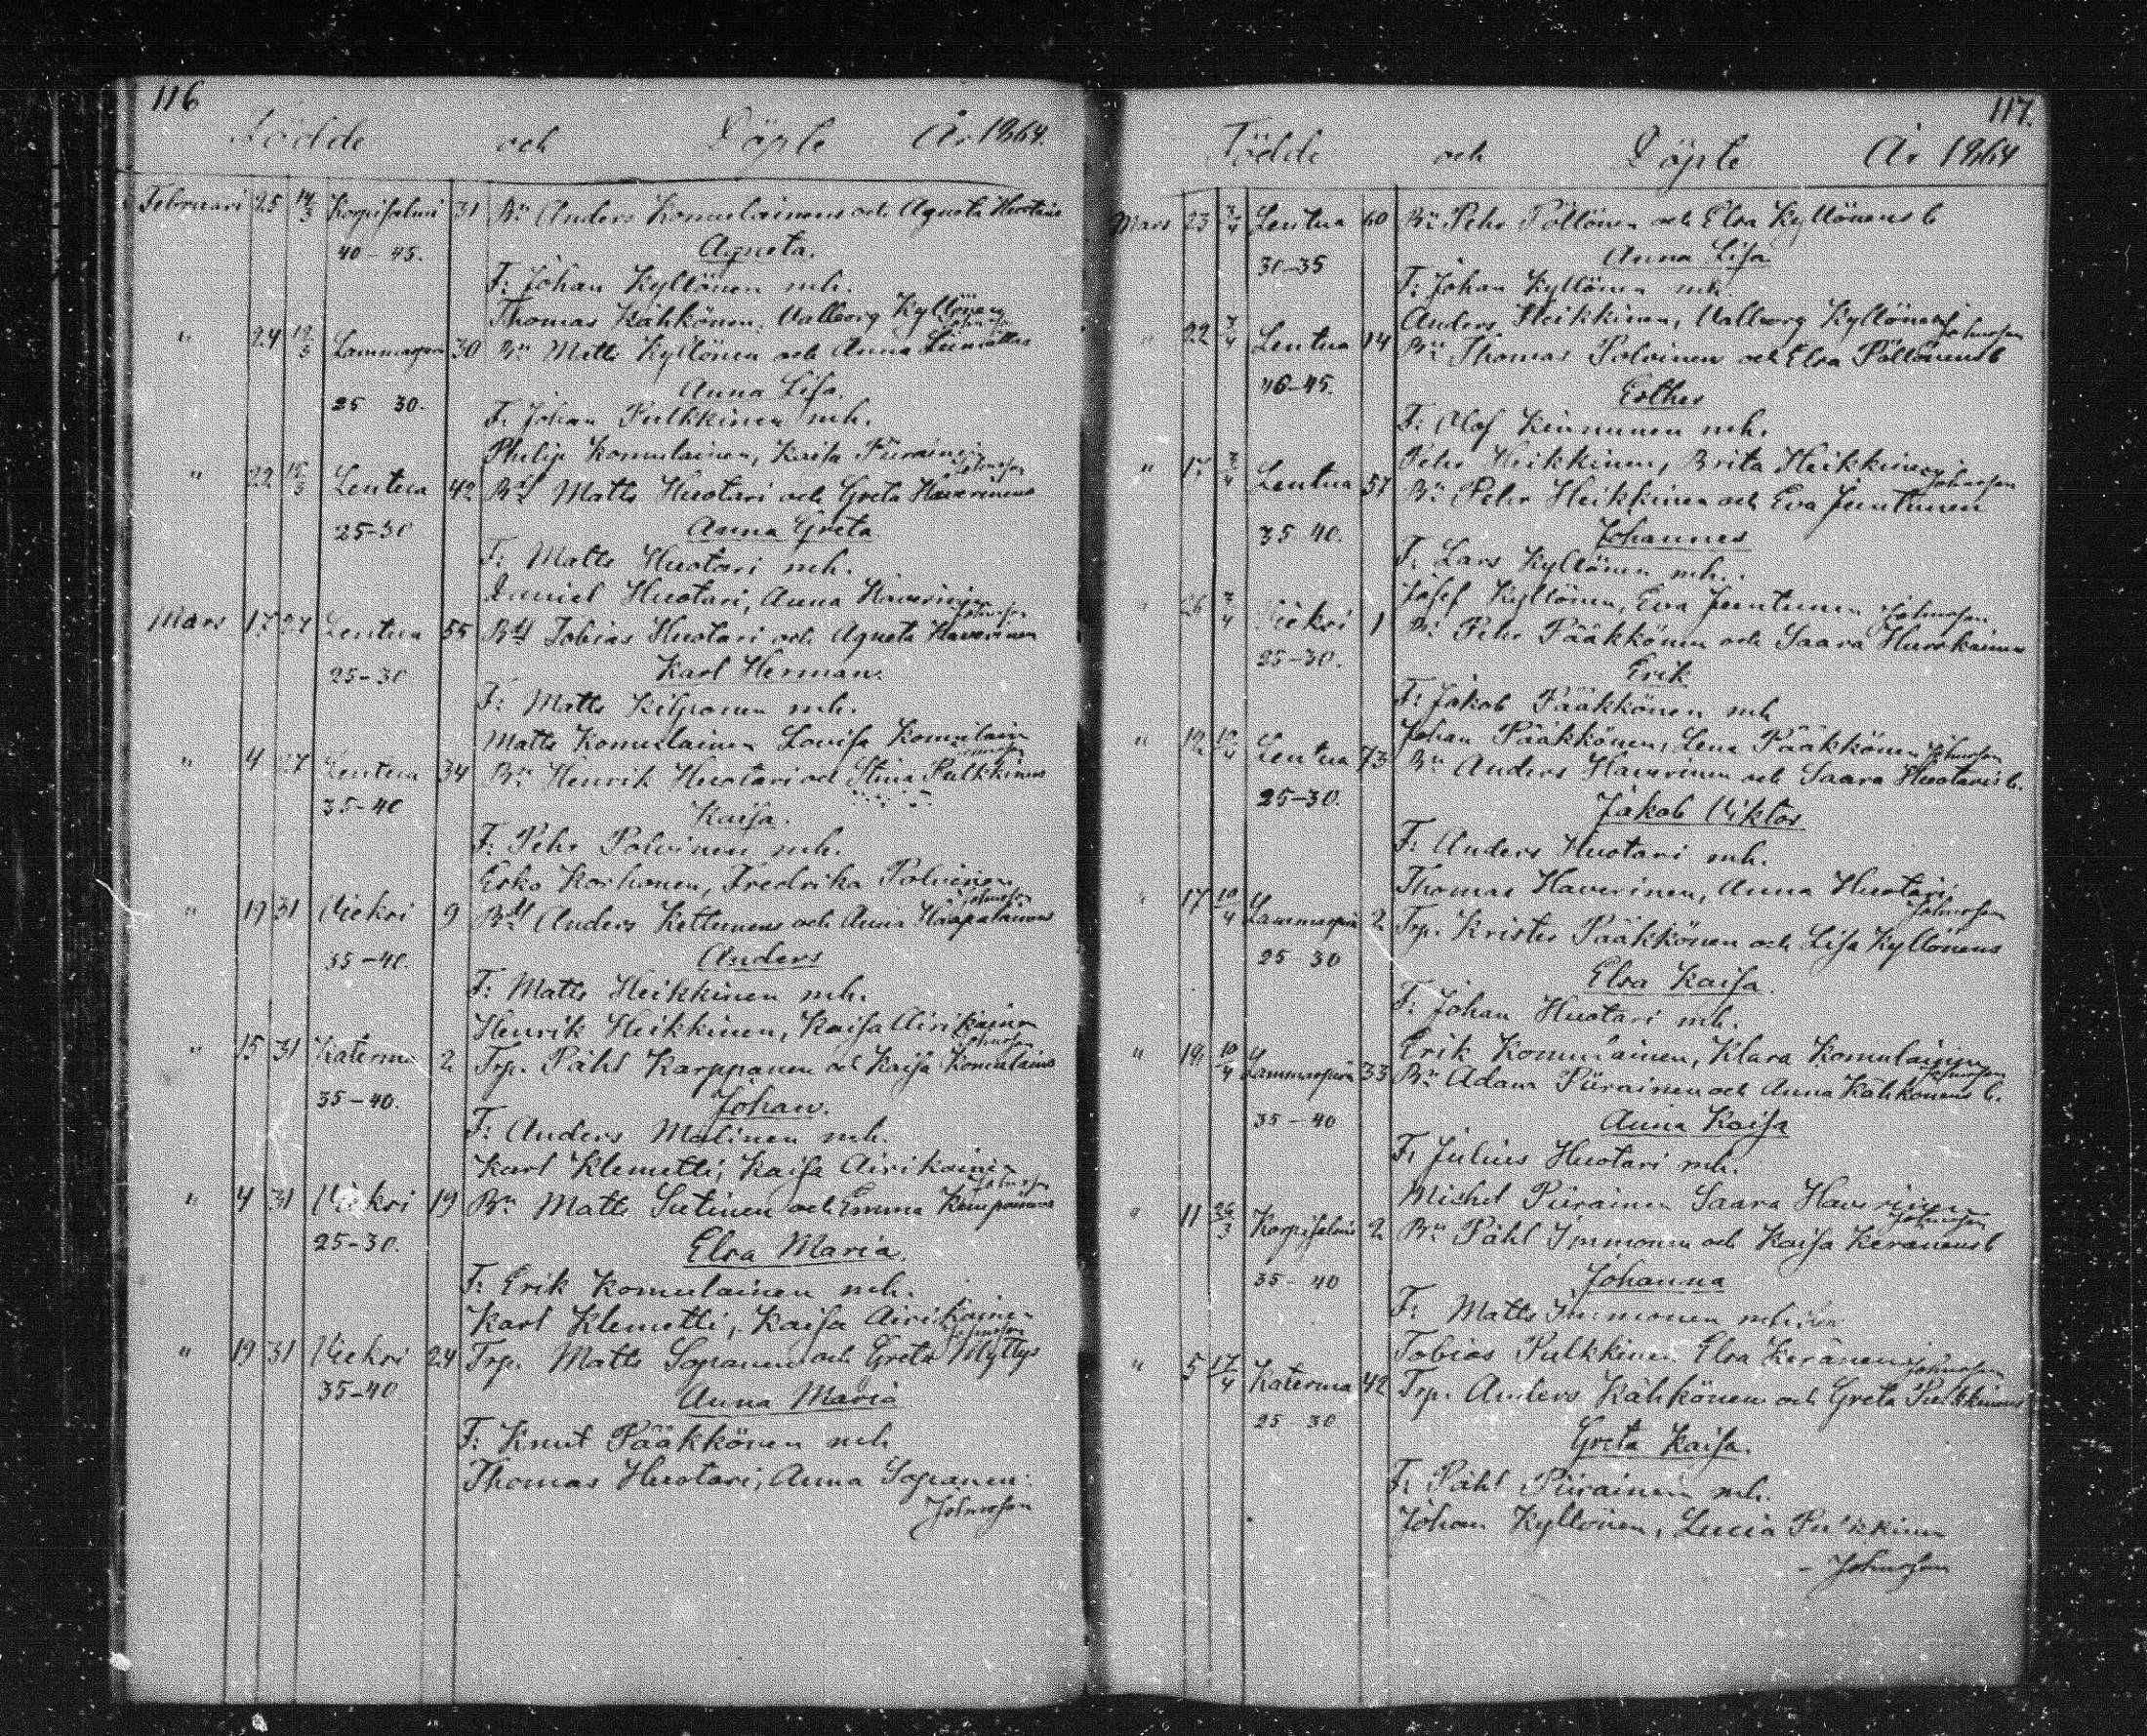 116
Födde och Döpte År 1864.
Februari 25 14/3 Korpisalmi 31 Bn Anders Komulainens och Agneta Huotaris
40-45. Agneta.
F: Johan Kyllönen mh.
Thomas Kähkönen, Valborg Kyllönen
Johnsson
" 24 12/3 Lammasper 30 Bn Matts Kyllönen och Anna
25 30. Anna Lisa.
F. Johan Pulkkinen mh.
Philip Komulainen, Kaisa Piirainen
Johnsson
" 22 15/3 Lentua 42 Matts Huotari och Greta Haverinens
25-30 Anna Greta
F: Matts Huotari mh.
Daniel Huotari, Anna Haverinen
Johnsson
Mars 17 27 Lentua 55 Tobias Huotari och Agneta Haverinen
25-30 Karl Herman.
F: Matts Kilponen mh.
Matts Komulainen Lovisa Komulain
Johnsson
" 4 27 Lentua 34 Bn Henrik Huotari och Stina Pulkkinens
35-40 Kaisa.
F: Pehr Polvinen mh.
Erko Korhonen, Fredrika Polvinen
Johnsson
" 19 31 Viekri 9 Anders Kettunens och Anna Haapalainens
35-40. Anders
F: Matts Heikkinen mh.
Henrik Heikkinen, Kaisa Airikainen
Johnsson
" 15 31 Katerma 2 Trp. Påhl Karppanen och Kaisa Komulains
35-40. Johan.
F: Anders Malinen mh.
Karl Klemetti, Kaisa Airikainen
Johnsson
" 4 31 Viekri 19 Bn Matts Sutinen och Emma Kemppainens
25-30. Elsa Maria.
F: Erik Komulainen mh.
Karl Klemetti, Kaisa Airikainen
Johnsson
" 19 31 Viekri 24 Trp. Matts Sopanen och Greta Myttys
35-40 Anna Maria
F: Knut Pääkkönen mh
Thomas Huotari, Anna Sopanen.
Johnsson
117.
Födde och Döpte År 1864
Mars 23 3/4 Lentua 60 Bn Pehr Pöllönen och Elsa Kyllönens b
30-35 Anna Lisa
F: Johan Kyllönen mh.
Anders Heikkinen, Valborg Kyllönen
Johnsson
" 22 3/4 Lentua 14 Bn Thomas Polvinen och Elsa Pöllönens b
46-45. Esther
F: Olof Kinnunen mh.
Pehr Heikkinen, Brita Heikkinen
Johnsson
" 17 3/4 Lentua 57 Bn Pehr Heikkinen och Eva Juntunen
35 40. Johannes
F. Lars Kyllönen mh.
Josef Kyllönen, Eva Juntunen
Johnsson
" 26 3/4 Viekri 1 Bn Pehr Pääkkönen och Saara Hurskainen
25-30. Erik
F: Jakob Pääkkönen mh
Johan Pääkkönen, Lena Pääkkönen
Johnsson
" 19 10/4 Lentua 73 Bn Anders Haverinen och Saara Huotaris b.
25-30. Jakob Viktor
F. Anders Huotari mh.
Thomas Haverinen, Anna Huotari
Johnsson
" 17 10/4 Lammasperä 2 Trp. Krister Pääkkönen och Lisa Kyllönens
25 30 Elsa Kaisa.
F: Johan Huotari mh.
Erik Komulainen, Klara Komulainen
Johnsson
" 19 10/4 Lammasperä 33 Bn Adam Piirainen och Anna Kähkönens b.
35-40 Anna Kaisa
F. Julius Huotari mh.
Michel Piirainen Saara Haverinen
Johnsson
" 11 26/3 Korpisalmi 2 Bn Påhl Immonen och Kaisa Keränens b
35-40 Johanna
F: Matts Immonen
Tobias Pulkkinen Elsa Keränen
Johnsson
" 5 17/4 Katerma 42 Trp. Anders Kähkönen och Greta Pulkkinens
25 30 Greta Kaisa.
F. Påhl Piirainen mh.
Johan Kyllönen, Lucia Pulkkinen
Johnsson